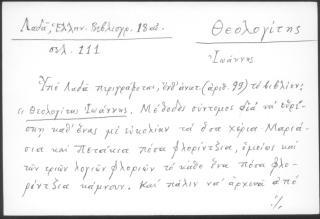 Λαδᾶ, Ἑλλην. Βιβλιογρ. 18 αἰ.
Θεολογίτης
σελ. 111
Ἰωάννης
Ὑπὸ Λαδᾶ περιγράφεται, ἔνθ' ἀνωτ. (ἀριθ. 99) τὸ βιβλίον:
« Θεολογίτας Ἰωάννης. Μέθοδος σύντομος διὰ νὰ εὑρί-
σκῃ καθ' ἕνας μὲ εὐκολίαν τὰ ὅσα χάρια Μαριά-
σια καὶ Πετάκια πόσα φλορίντζια, ὁμοίως καὶ
τῶν τριῶν λογιῶν φλοριῶν τὸ κάθε ἕνα πόσα φλο-
ρίντζια κάμνουν. Καὶ πάλιν νὰ ἀρχινᾷ ἀπὸ
./.